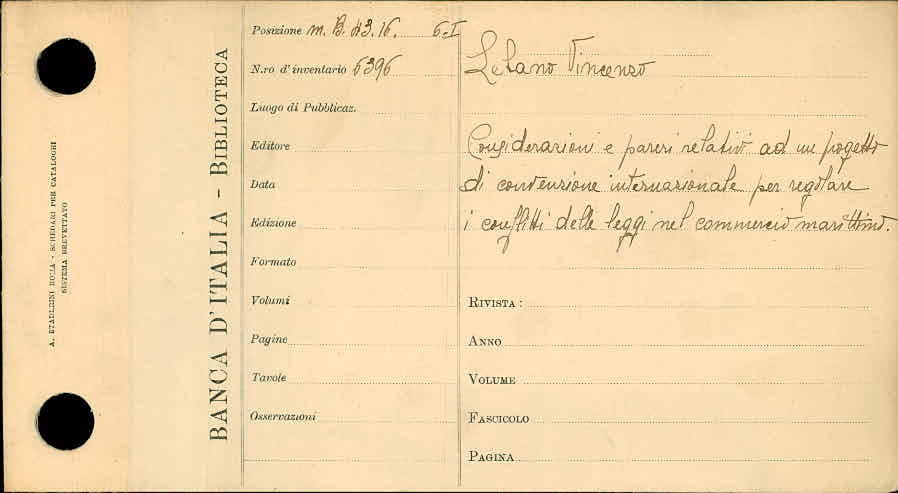 A. STADERINI ROMA - SCHEDARI PER CATALOGHI
SISTEMA BREVETTATO
BANCA D'ITALIA - BIBLIOTECA
Posizione m. B. 43.16. 6-I
N.ro d'inventario 6396
Luogo di Pubblicaz.
Editore
Data
Edizione
Formato
Volumi
Pagine
Tavole
Osservazioni
Lebano Vincenzo
Considerazioni e pareri relativi ad un progetto
di convenzione internazionale per regolare
i conflitti delle leggi nel commercio marittimo.
RIVISTA :
ANNO
VOLUME
FASCICOLO
PAGINA